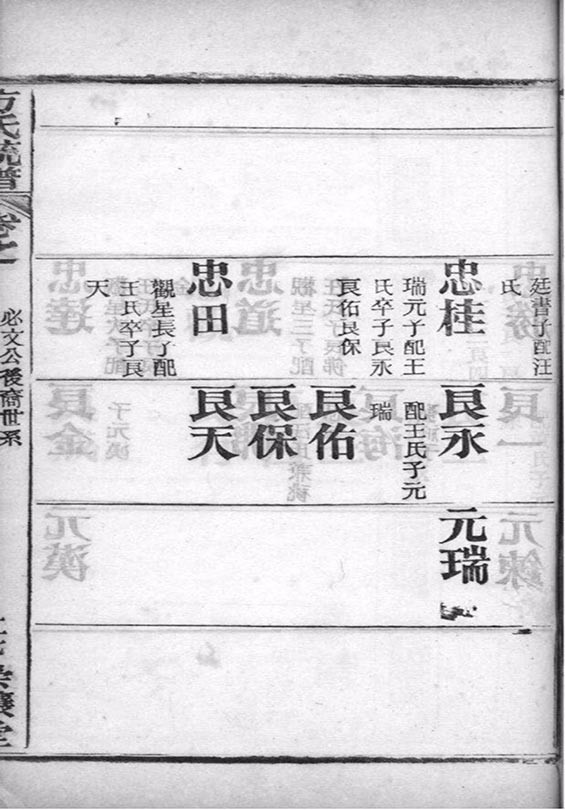 廷書子配汪
氏
忠桂
瑞元子配王
氏卒子良永
良佑良保
忠田
觀星長子配
王氏卒子良
天
良永
配王氏子元
瑞
良佑
良保
良天
元瑞
方氏統譜
卷之一
必文公後裔世系